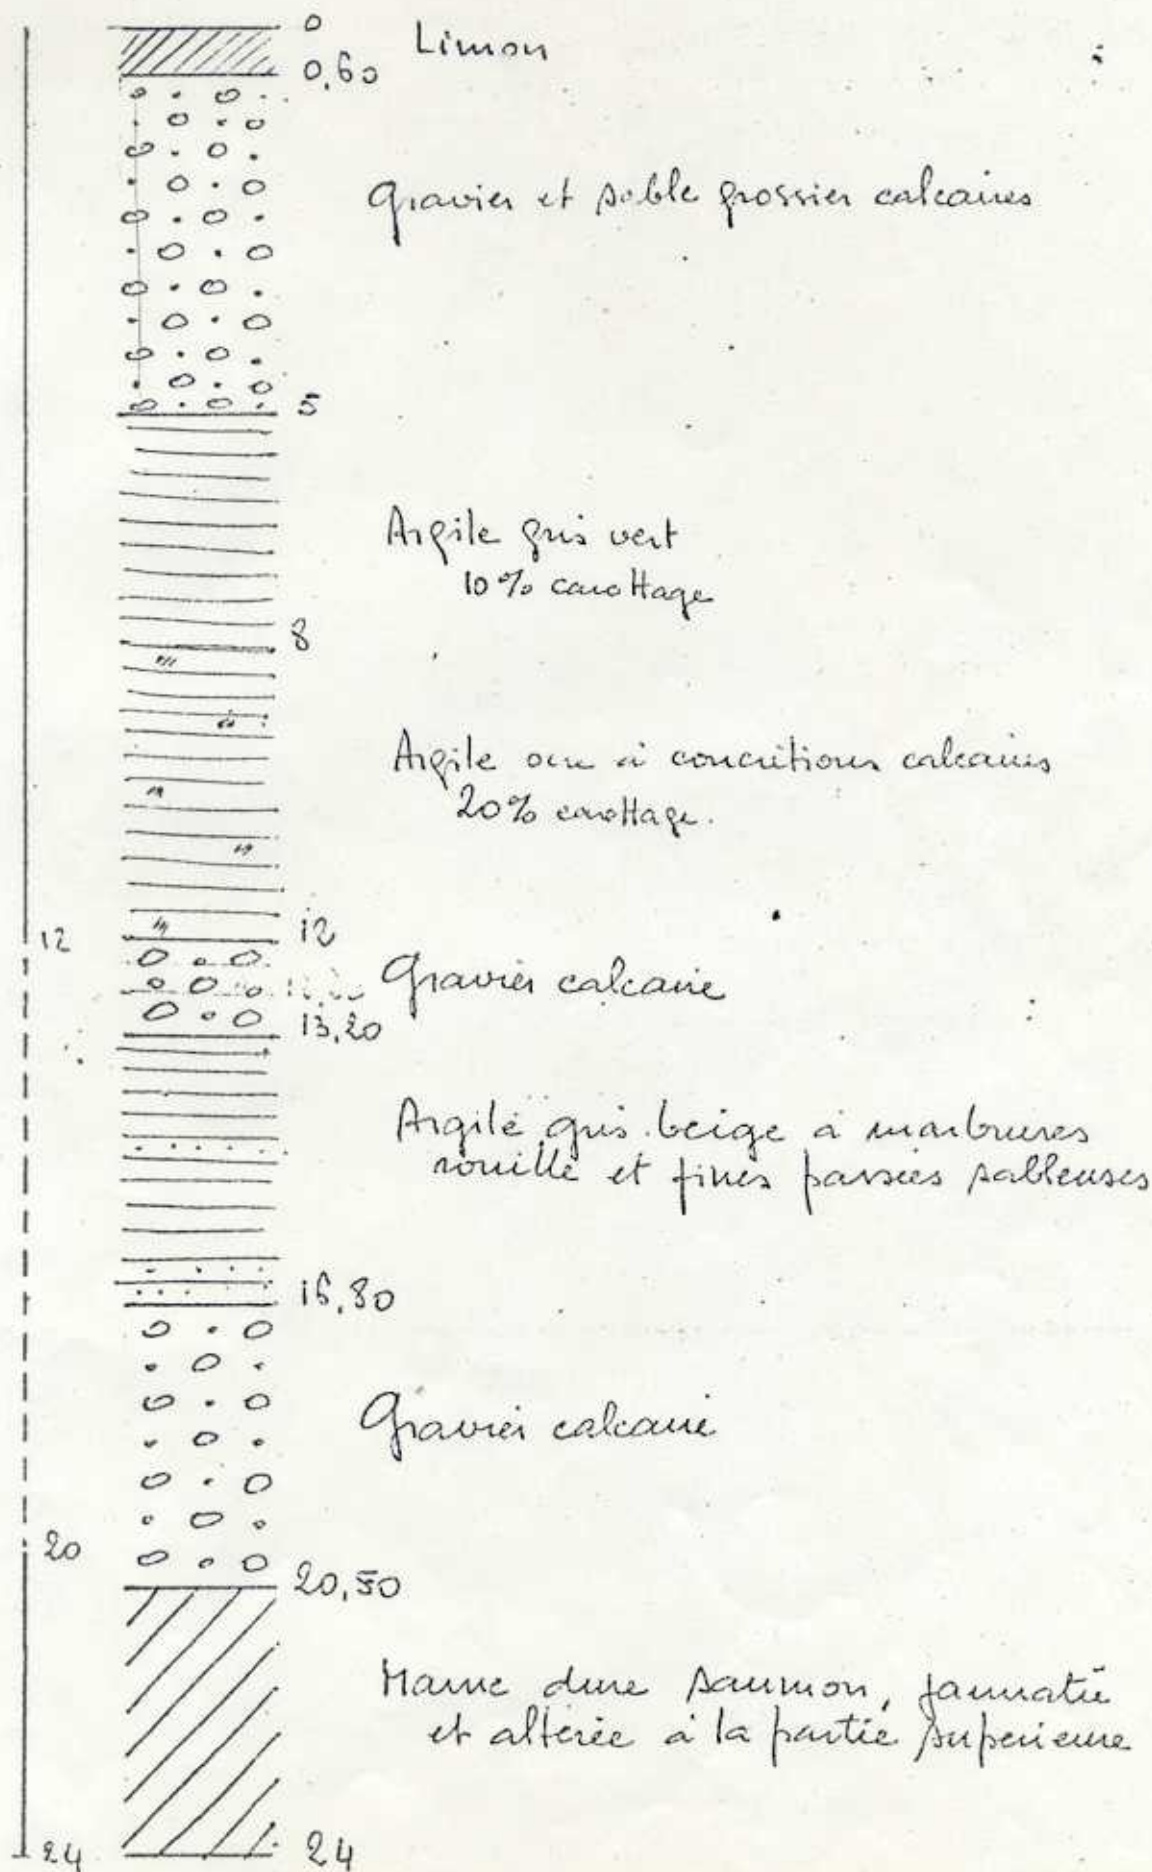 0
Limon
0,60
Gravier et sable grossier calcaires
5
Argile gris vert
10% carottage
8
Argile ocre à concrétions calcaires
20% carottage.
12
12
Gravier calcaire
13,20
Argile gris beige à marbrures
rouille et fines passées sableuses
16,80
Gravier calcaire
20
20,50
Marne dure saumon, jaunatre
et altérée à la partie supérieure
24
24